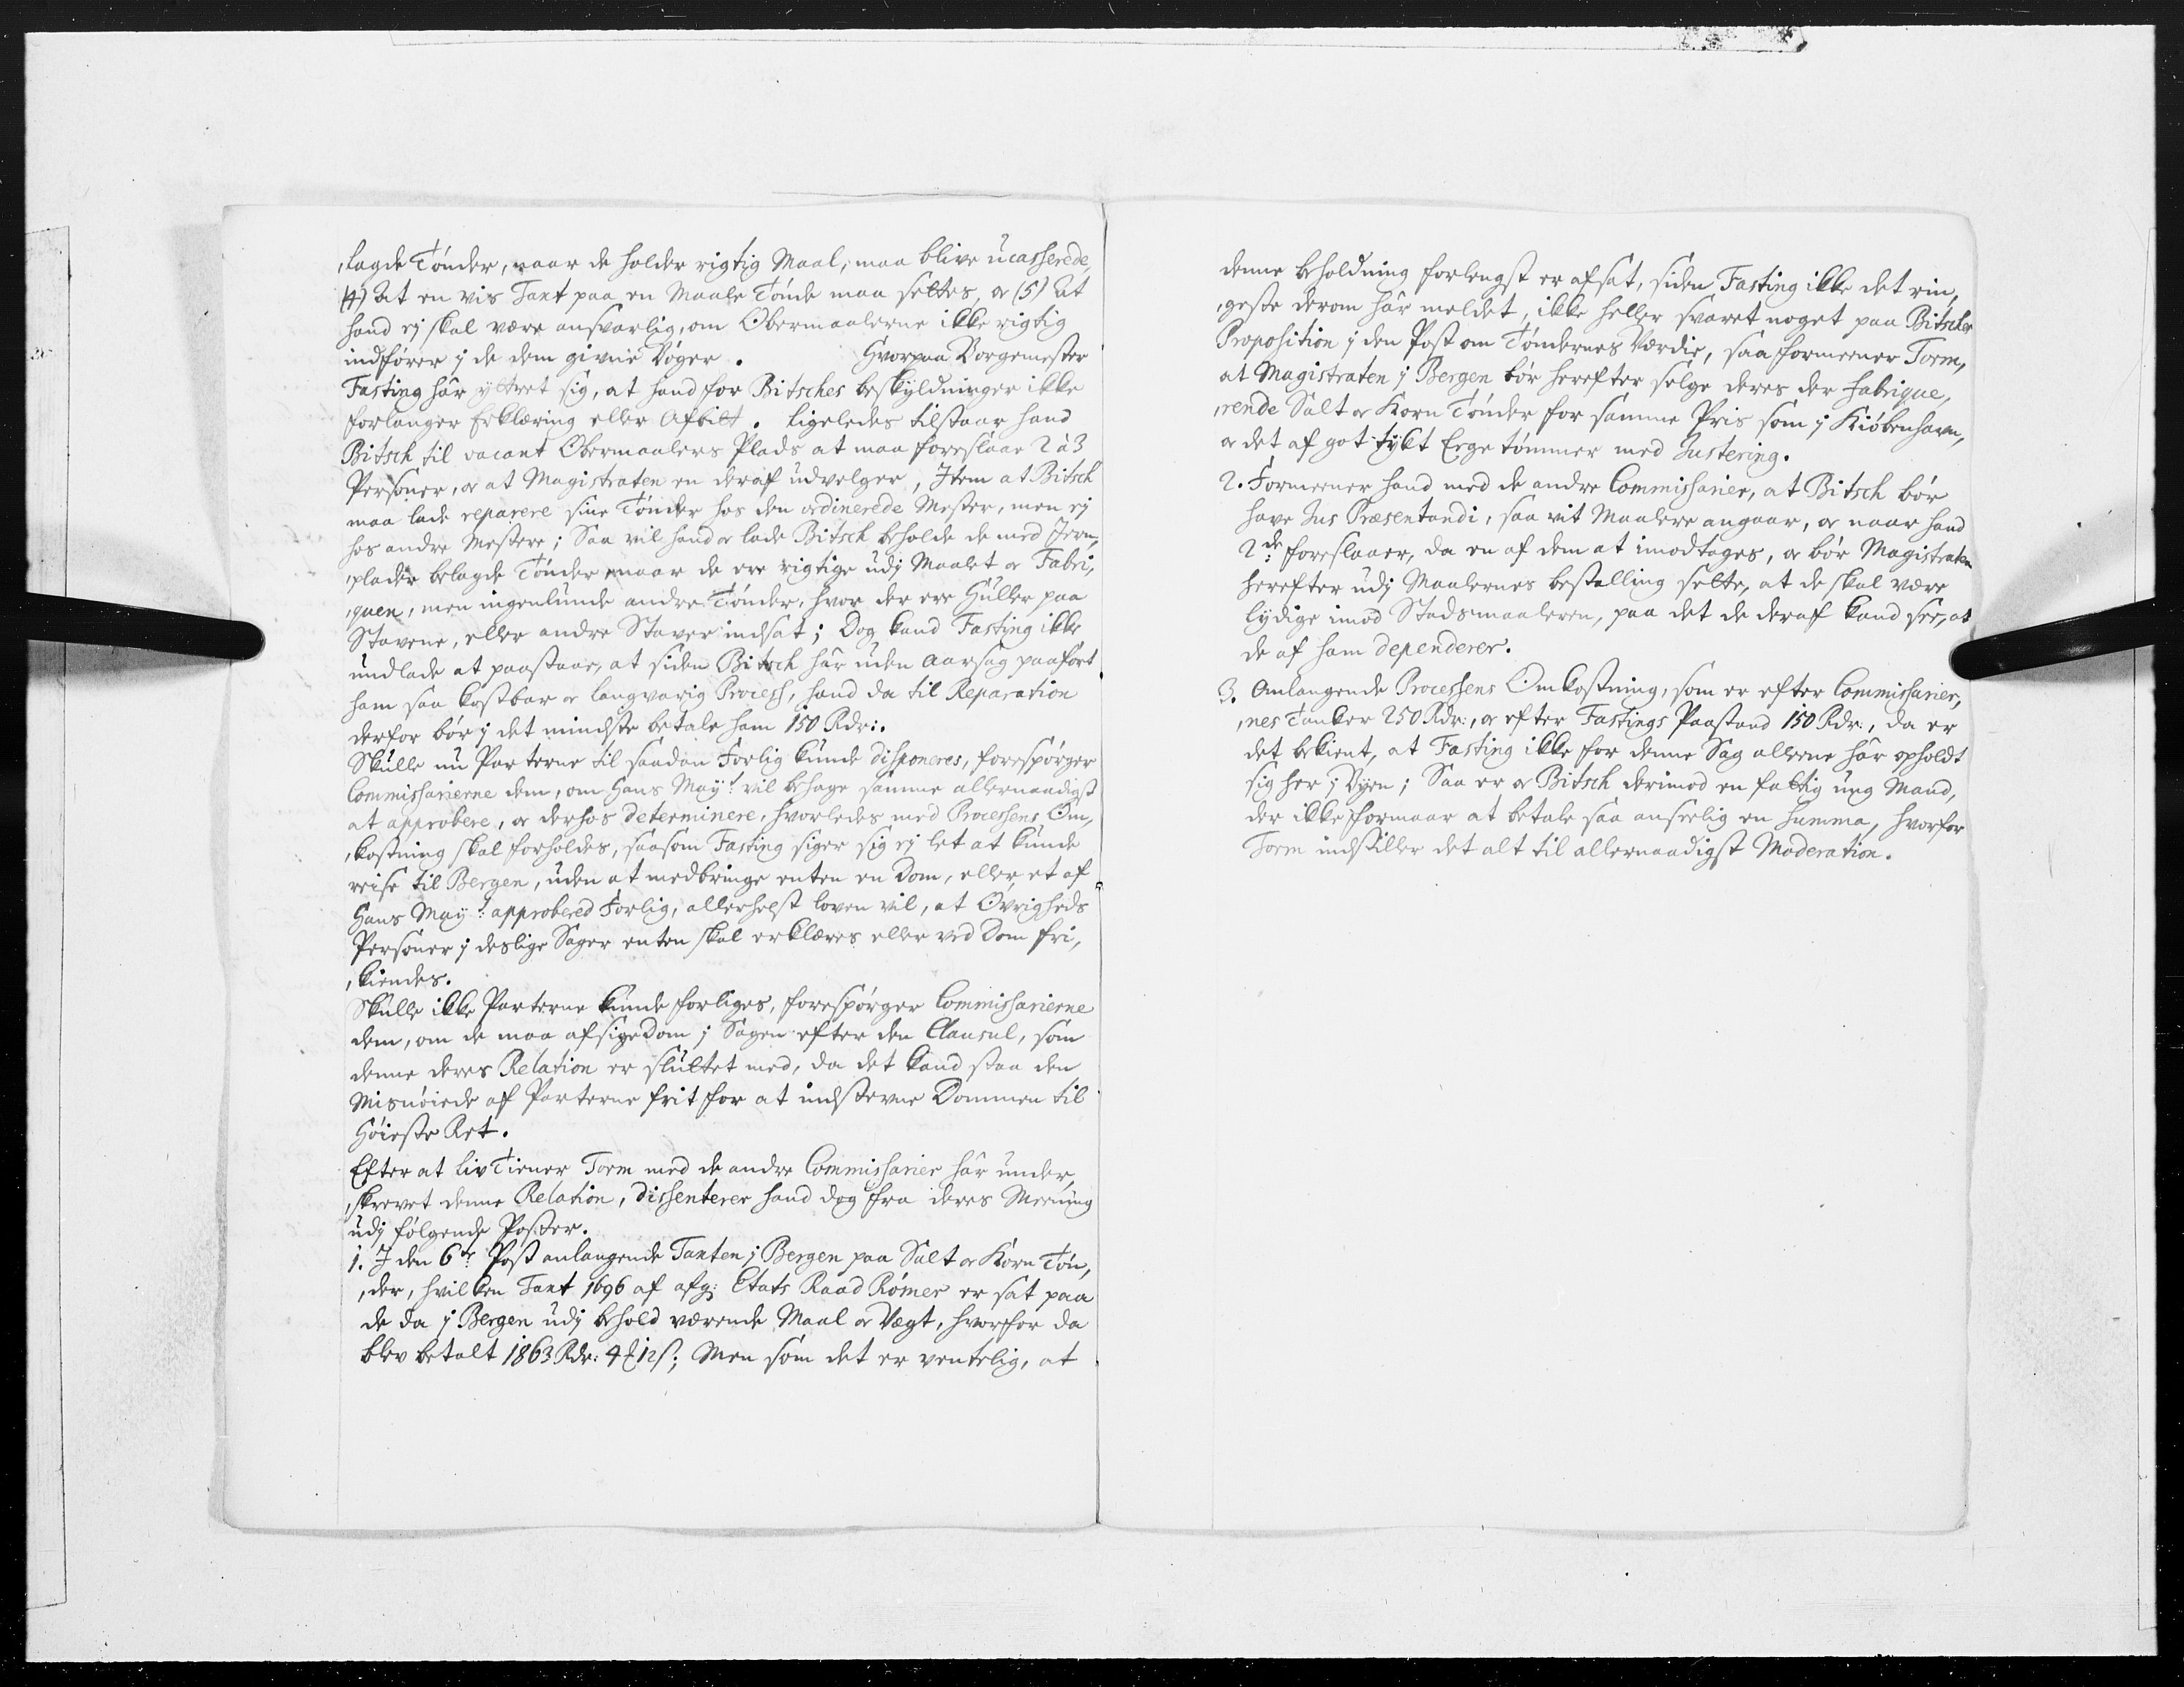 ,lagde Tønder, naar de holder rigtig Maal, maa blive ucasserede,
(4) At en vis Taxt paa en Maale Tønde maa settes, or (5) At
hand ej skal være ansvarlig, om Obermaalerne ikke rigtig
indfører j de dem givne Bøger. Hvorpaa Borgemester
Fasting hâr yttret sig, at hand for Bitsches beskyldninger ikke
forlanger Erklæring eller Afbitt. Ligeledes tilstaar hand
Bitsch til vacant Obermaalers Plads at maa foreslaae 2 à 3
Personer, or at Magistraten en deraf udvelger, Item at Bitsch
maa lade reparere sine Tønder hos den ordinerede Mester, men ej
hos andre Mestere; Saa vil hand or lade Bitsch beholde de med Jern,
,plader belagde Tønder naar de ere rigtige udj Maalet or Fabri,
,quen, men ingenlunde andre Tønder, hvor der ere Huller paa
Stavene, eller andre Staver indsat; Dog kand Fasting ikke
undlade at paastaae, at siden Bitsch hâr uden Aarsag paaført
ham saa kostbar or langvarig Process, hand da til Reparation
derfor bør j det mindste betale ham 150 Rdr:.
Skulle nu Parterne til saadan Forlig kunde disponeres, forespørger
Commissarierne dem, om Hans May:t vil behage samme allernaadigst
at approbere, or derhos determinere, hvorledes med Processens Om,
,kostning skal forholdes, saasom Fasting siger sig ej let at kunde
reise til Bergen, uden at medbringe enten en Dom, eller et af
Hans May:t approbered Forlig, allerhelst loven vil, at Øvrigheds
Personer j deslige Sager enten skal erklæres eller ved Dom fri,
,kiendes.
Skulle ikke Parterne kunde forliges, forespørger Commissarierne
dem, om de maa afsige Dom j Sagen efter den Clausul, som
denne deres Relation er sluttet med, da det kand staa den
Misnøiede af Parterne frit for at indstevne Dommen til
Høieste Ret.
Efter at Liv Tiener Torm med de andre Commissarier hâr under,
,skrevet denne Relation, dissenterer hand dog fra deres Meening
udj følgende Poster.
1. J den 6te Post anlangende Taxten j Bergen paa Salt or Korn Tøn,
,der, hvilken Taxt 1696 af afg: Etats Raad Rømer er sat paa
de da j Bergen udj behold værende Maal or Vegt, hvorfor da
blev betalt 1863 Rdr: 4 ℔ 12 s; Men som det er ventelig, at
denne beholdning forlengst er afsat, siden Fasting ikke det rin,
,geste derom hâr meldet, ikke heller svaret noget paa Bitsches
Proposition j den Post om Tøndernes Værdie, saa formeener Torm,
at Magistraten j Bergen bør herefter selge deres der fabrique,
,rende Salt or Korn Tønder for samme Pris som j Kiøbenhavn,
or det af got tykt Ege tømmer med Justering.
2. Formeener hand med de andre Commissarier, at Bitsch bør
have Jus Præsentandi, saa vit Maalere angaar, or naar hand
2de foreslaaer, da en af dem at imodtages, or bør Magistraten
herefter udj Maalernes bestalling sette, at de skal være
lydige imod Stadsmaaleren, paa det de deraf kand see, at
de af ham dependerer.
3. Anlangende Processens Omkostning, som er efter Commissarier,
,nes Tanker 250 Rdr:, or efter Fastings Paastand 150 Rdr:, da er
det bekient, at Fasting ikke for denne Sag alleene hâr opholdt
sig her j Byen; Saa er or Bitsch derimod en fattig ung Mand,
der ikke formaar at betale saa anseelig en Summa, hvorfor
Torm indstiller det alt til allernaadigst Moderation.